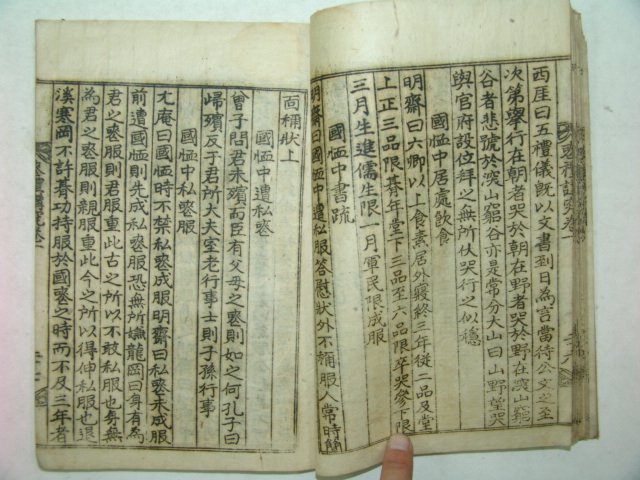 西厓曰五禮儀旣以文書到日爲言當待公文之至
次第擧行在朝者哭於朝在野者哭於野在深山窮
谷者悲號於深山窮谷亦是常分大山曰山野望哭
與官府設位拜之無所伏哭行之似穩
國恤中居處飮食
明齋曰六卿以上食素居外寢終三年後一品及堂
上正三品限朞年堂下三品至六品限卒哭參下限
三月生進儒生限一月軍民限成服
國恤中書疏
明齋曰國恤中遭私服答慰狀外不稱服人常時簡
面稱狀上
國恤中遭私喪
曾子問君未殯而臣有父母之喪則如之何孔子曰
歸殯反于君所大夫室老行事士則子孫行事
國恤中私喪服
尤庵曰國恤時不禁私喪成服明齋曰私喪未成服
前遭國恤則先成私喪服恐無所嫌龍岡曰身有爲
君之喪服則君服重此古之所以不敢私服也身無
爲君之喪服則親服重此今之所以得伸私服也退
溪寒岡不許朞功持服於國喪之時而不及三年者